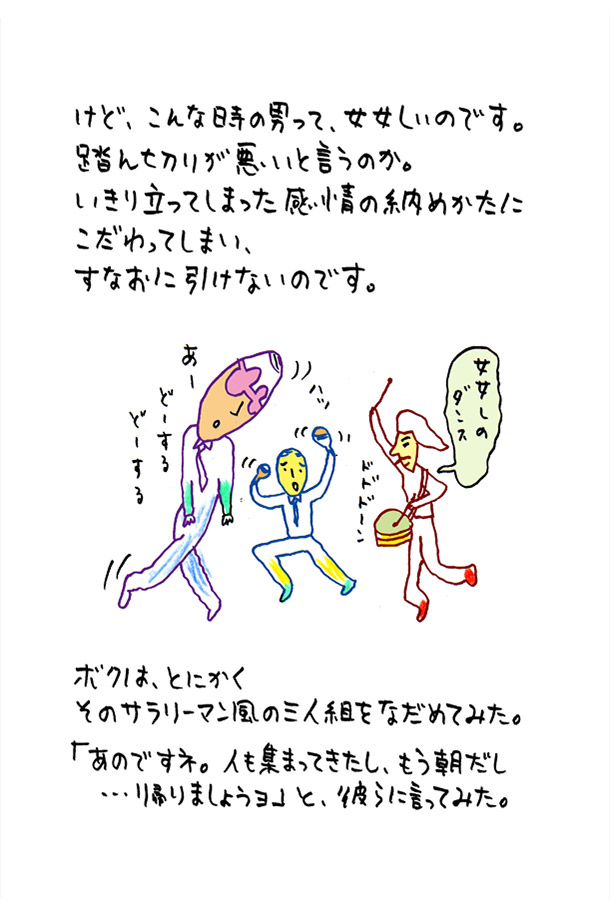 けど、こんな時の男って、女女しいのです。
踏ん切りが悪いと言うのか。
いきり立ってしまった感情の納めかたに
こだわってしまい、
すなおに引けないのです。
女女しの
ダンス
ハッ
あー
どーする
どーする
ドドドーン
ボクは、とにかく
そのサラリーマン風の三人組をなだめてみた。
「あのですネ。人も集まってきたし、もう朝だし
…帰りましょうヨ」と、彼らに言ってみた。